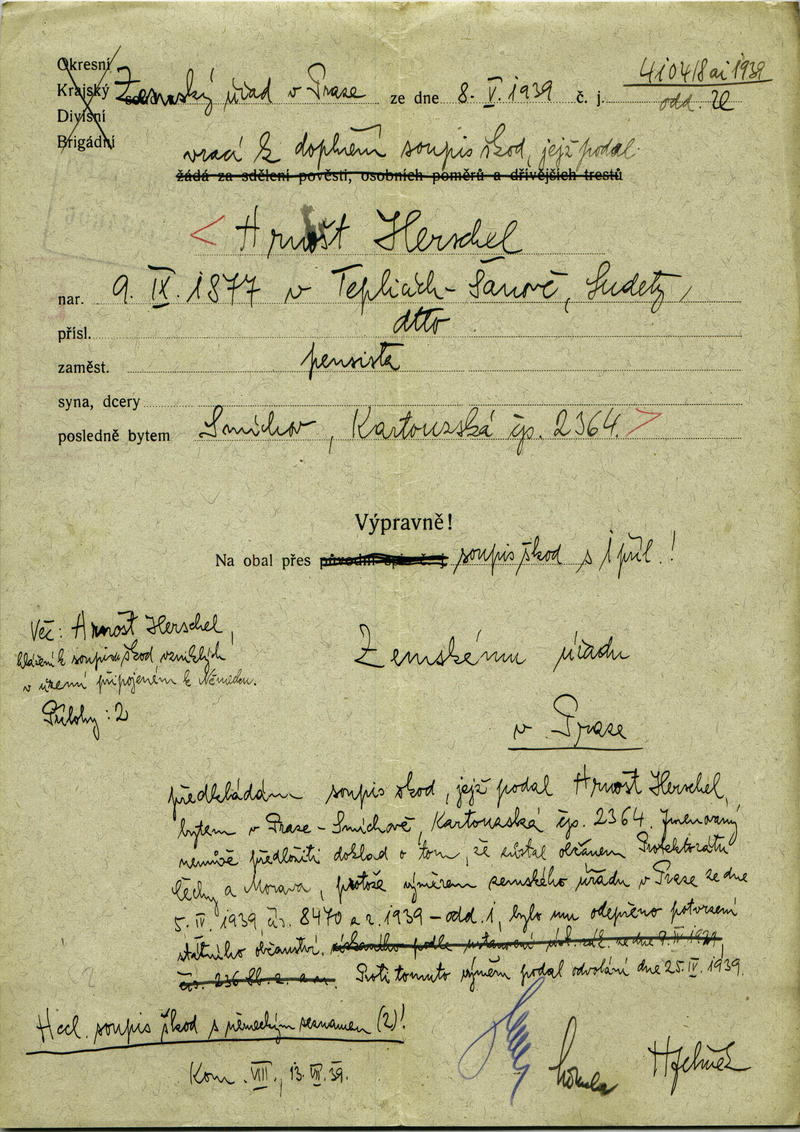 Okresní
Krajský
Divisní
Brigádní
Zemský úřad v Praze ze dne 8. V. 1939 č. j. 4104/8 ai 1939
odd.
vrací k doplnění soupis škod, jejž podal
žádá za sdělení pověsti, osobních poměrů a dřívějších trestů
< Arnošt Herschel
nar. 9. IX. 1877 v Teplicích-Šanově, Sudety,
přísl. dtto
zaměst. pensista
syna, dcery
posledně bytem Smíchov, Kartouzská čp. 2364. >
Výpravně!
Na obal přes původní spis č. j. soupis škod s 1 příl.!
Věc: Arnošt Herschel,
hlášení k soupisu škod vzniklých
v území připojeném k Německu.
Přílohy: 2
Zemskému úřadu
v Praze
předkládám soupis škod, jejž podal Arnošt Herschel,
bytem v Praze-Smíchově, Kartouzská čp. 2364. Jmenovaný
nemůže předložiti doklad o tom, že zůstal občanem Protektorátu
Čechy a Morava, protože výměrem zemského úřadu v Praze ze dne
5. IV. 1939, čís. 8470 a r. 1939 - odd. 1, bylo mu odepřeno potvrzení
státního občanství, získaného podle ustanovení úst. zák. ze dne 9. IV. 1920,
čís. 236 Sb. z. a n. Proti tomuto výměru podal odvolání dne 25. IV. 1939.
2
Hccl. soupis škod s německým seznamem (2)!
Kom. VIII, 13. VII. 39.